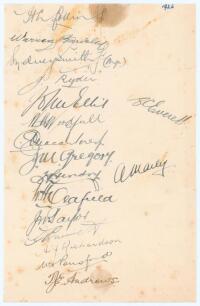 1926
H L Collins
Warren Bardsley
Sydney Smith Jr (Mgr)
J. Ryder
J.L. Ellis
S C Everett
W M Woodfull
J M Gregory
A. Mailey
H L Hendry
W A Oldfield
J M Taylor
A J Richardson
W H Ponsford
T J E Andrews